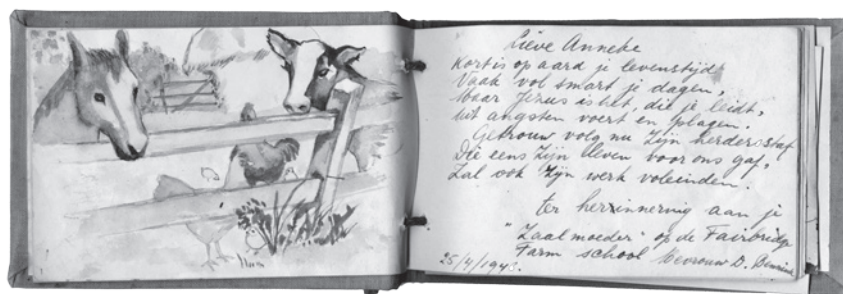 Lieve Anneke
Kort is op aard je levenstijdt
Vaak vol smart je dagen,
Maar Jezus is het, die je leidt,
uit angsten voert en plagen.
Getrouw volg nu Zijn herdersstaf
Die eens Zijn leven voor ons gaf,
Zal ook Zijn werk voleinden.
ter herinnering aan je
"Zaalmoeder" op de Fairbridge
Farm school Mevrouw D.
25/4/194